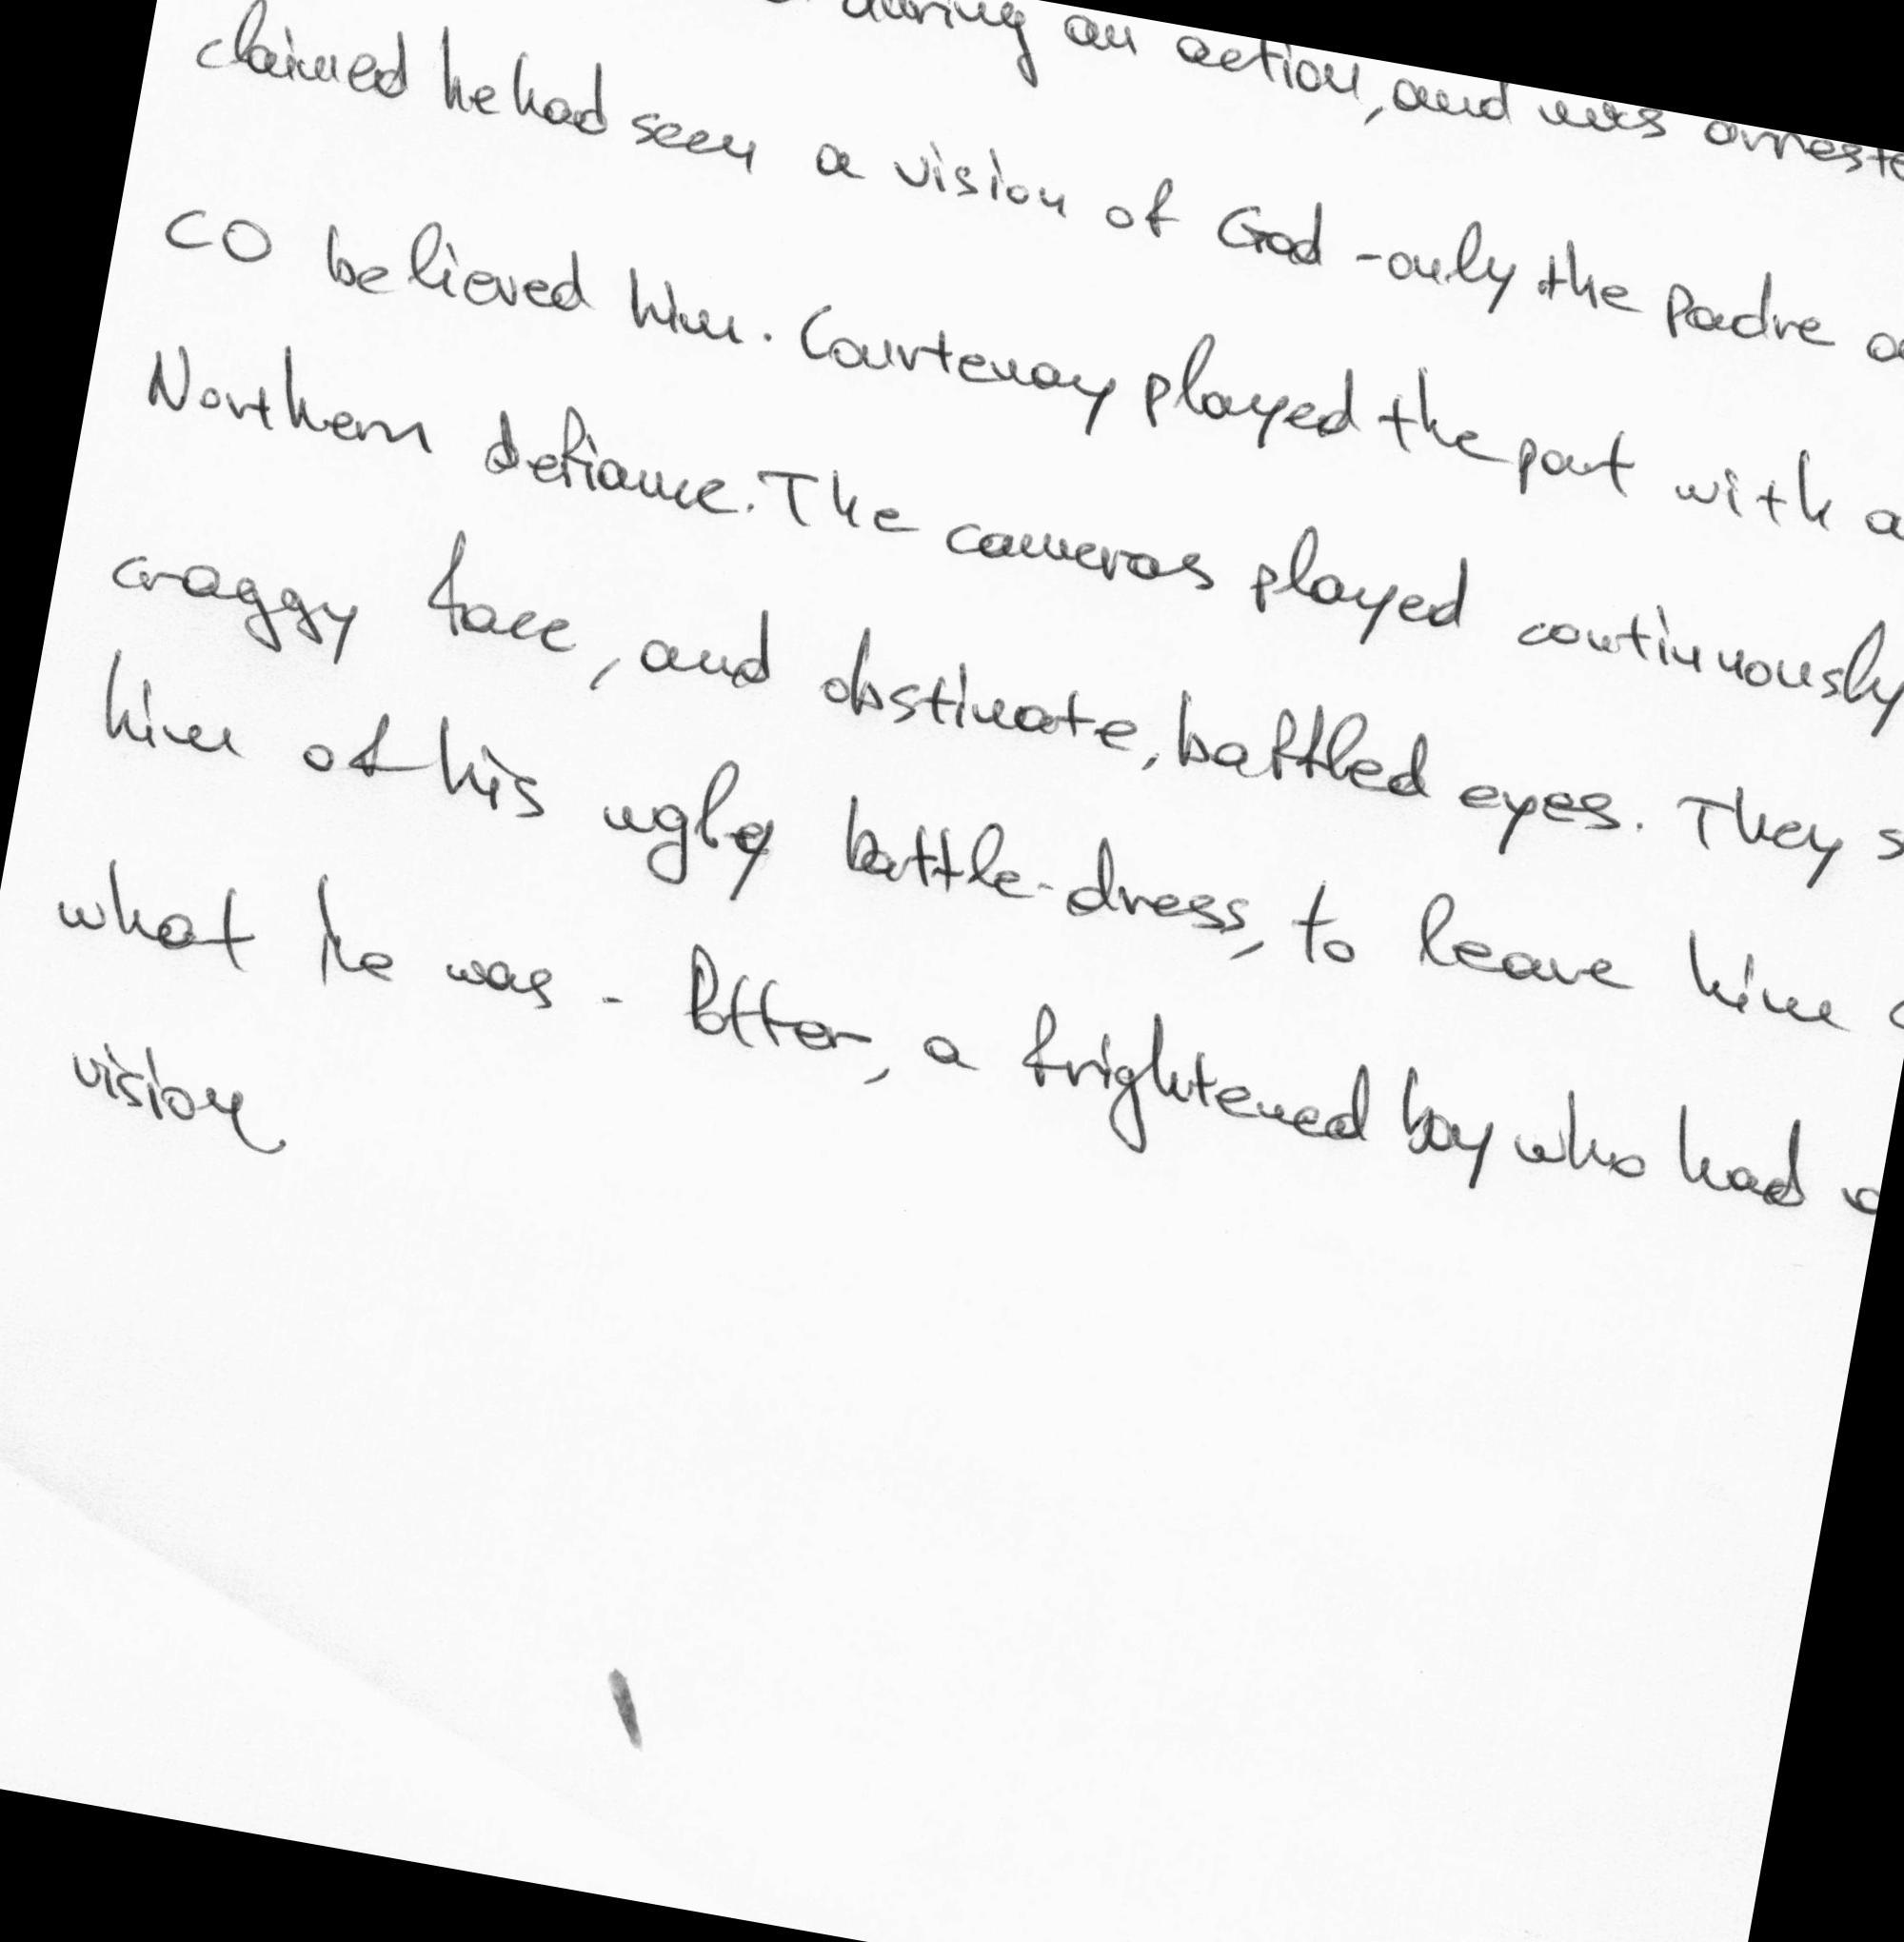 during an action, and was
claimed he had seen a vision of God - only the Padre
CO believed him. Courtenay played the part with a
Northern defiance. The cameras played continuously
craggy face, and obstinate, baffled eyes. They
him of his ugly battle-dress, to leave him
what he was - Potter, a frightened boy who had
vision